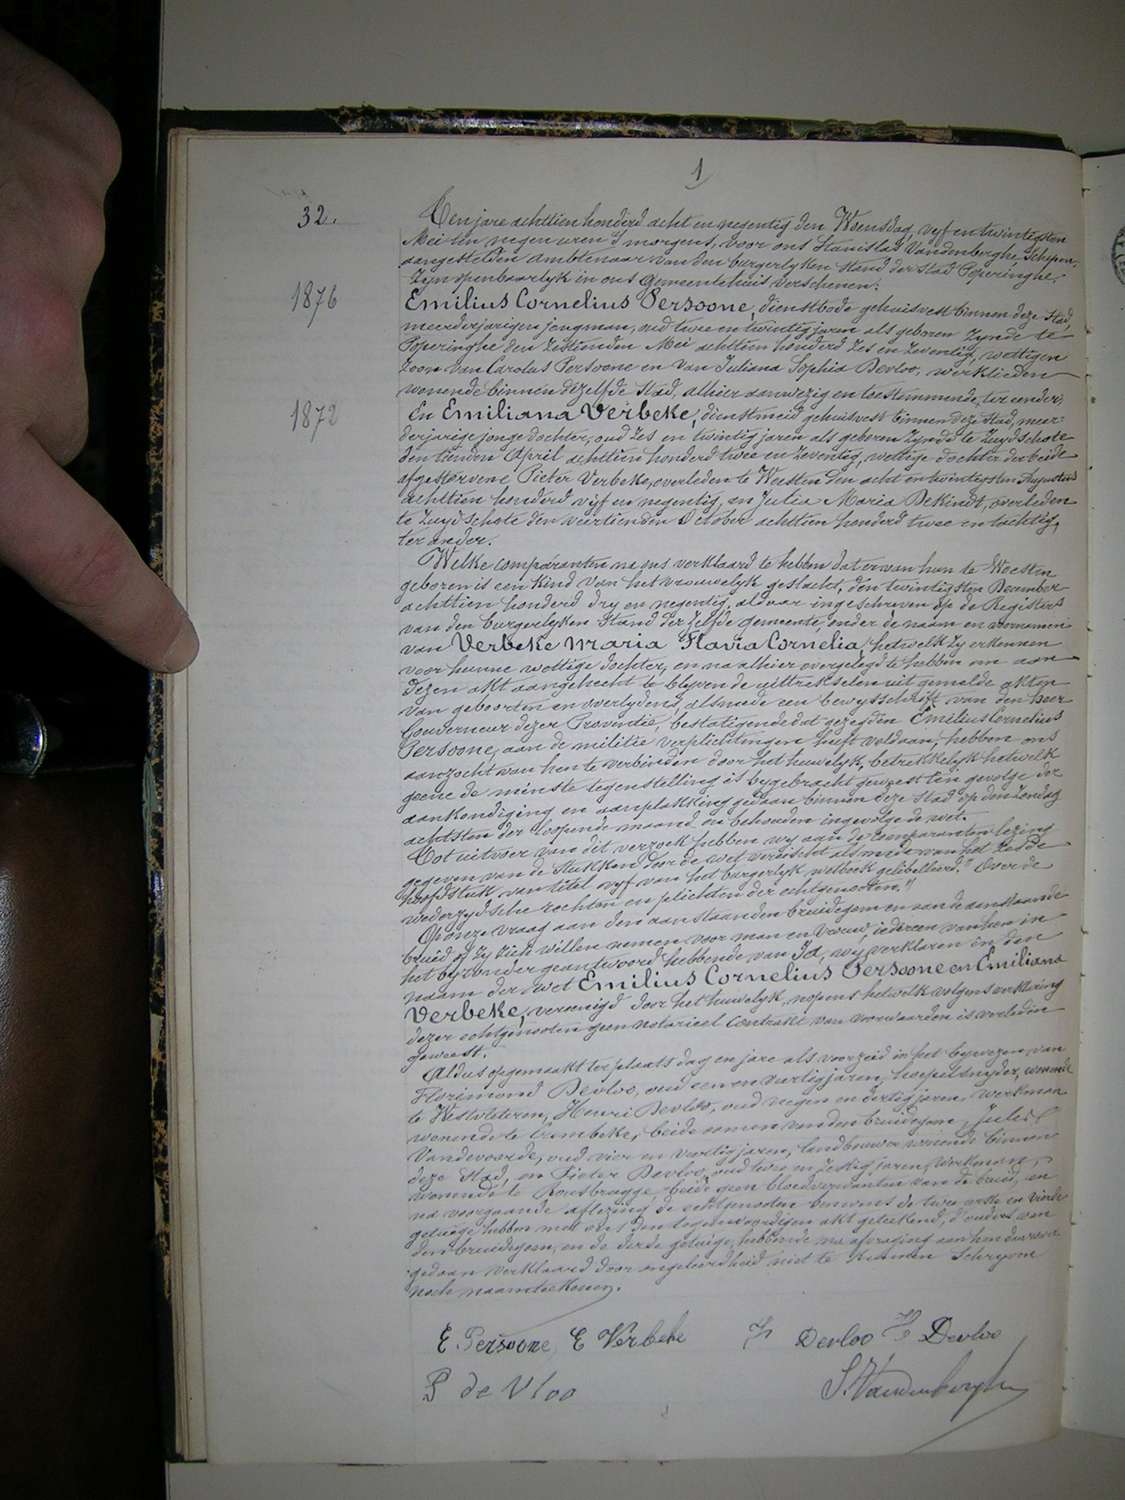 1
32.
Ten jare achttien honderd acht en negentig den Woensdag, vyf en twintigsten
Mei ten negen uren 's morgens, voor ons Stanislas Vandenberghe Schepen,
aangestelden Ambtenaar van den burgerlyken stand der stad Poperinghe,
zyn openbaarlyk in ons gemeentehuis verschenen:
1876
Emilius Cornelius Persoone, dienstbode gehuisvest binnen deze stad,
meerderjarigen jongman, oud twee en twintig jaren als geboren zynde te
Poperinghe den zestienden Mei achttien honderd zes en zeventig, wettigen
zoon van Carolus Persoone en van Juliana Sophia Devloo, werklieden
wonende binnen dezelfde stad, alhier aanwezig en toestemmende, ter eender;
1872
En Emiliana Verbeke, dienstmeid gehuisvest binnen deze stad, meer-
derjarige jonge dochter, oud zes en twintig jaren als geboren zynde te Zuydschote
den tienden April achttien honderd twee en zeventig, wettige dochter der beide
afgestorvene Pieter Verbeke, overleden te Westen den acht en twintigsten Augustus
achttien honderd vyf en negentig, en Julia Maria Dekindt, overleden
te Zuydschote den veertienden October achttien honderd twee en tachtig,
ter ander.
Welke comparanten na ons verklaard te hebben dat er van hun te Woesten
geboren is een kind van het vrouwelyk geslacht, den twintigsten December
achttien honderd dry en negentig, aldaar ingeschreven op de Registers
van den burgerlyken stand der zelfde gemeente, onder de naam en voornamen
van Verbeke Maria Flavia Cornelia, hetwelk zy erkennen
voor hunne wettige dochter, en na alhier overgelegd te hebben om aan
dezen akt aangehecht te blyven de uittrekselen uit gemelde akten
van geboorten en overlydens, alsmede een bewysschrift van den heer
Gouverneur dezer Provintie, bestatigende dat gezegden Emilius Cornelius
Persoone, aan de militie verplichtingen heeft voldaan; hebben ons
aanzocht van hen te verbinden door het huwelyk, betrekkelyk hetwelk
geene de minste tegenstelling is bygebracht geweest ten gevolge der
aankondiging en aanplakking gedaan binnen deze stad op den Zondag
achtsten der loopende maand en behouden ingevolge de wet.
Tot uitvoer van dit verzoek hebben wy aan de comparanten lezing
gegeven van de stukken door de wet vereischt als mede van het zesde
hoofdstuk van titel vyf van het burgerlyk wetboek gelibelleerd: "Over de
wederzydsche rechten en plichten der echtgenooten."
Op onze vraag aan den aanstaanden bruidegom en aan de aanstaande
bruid of zy zich willen nemen voor man en vrouw, iedereen van hen in
het byzonder geantwoord hebbende van Ja, wy verklaren in den
naam der wet Emilius Cornelius Persoone en Emiliana
Verbeke, vereenigd door het huwelyk, nopens hetwelk volgens verklaring
dezer echtgenooten geen notarieel contrakt van voorwaarden is verleden
geweest.
Aldus opgemaakt ter plaats dag en jare als voorzeid in het bywezen van
Florimond Devloo, oud een en veertig jaren, hoepelsnyder, wonende
te Westvleteren, Henri Devloo, oud negen en dertig jaren, werkman
wonende te Crombeke, beide oomen van den bruidegom, Jules
Vandevoorde, oud vier en veertig jaren, landbouwer wonende binnen
deze stad, en Pieter Devloo, oud twee en zestig jaren, werkman,
wonende te Rousbrugge, beide geen bloedverwanten van de bruid, en
na voorgaande aflezing de echtgenooten benevens de twee eerste en vierde
getuige hebben met ons den tegenwoordigen akt geteekend, d'ouders van
den bruidegom, en de derde getuige, hebbende na afvraging aan hen daarvan
gedaan verklaard door ongeleerdheid niet te kunnen schryven
noch naamteekenen.
E. Persoone E Verbeke F Devloo H Devloo
P de Vloo S. Vandenberghe